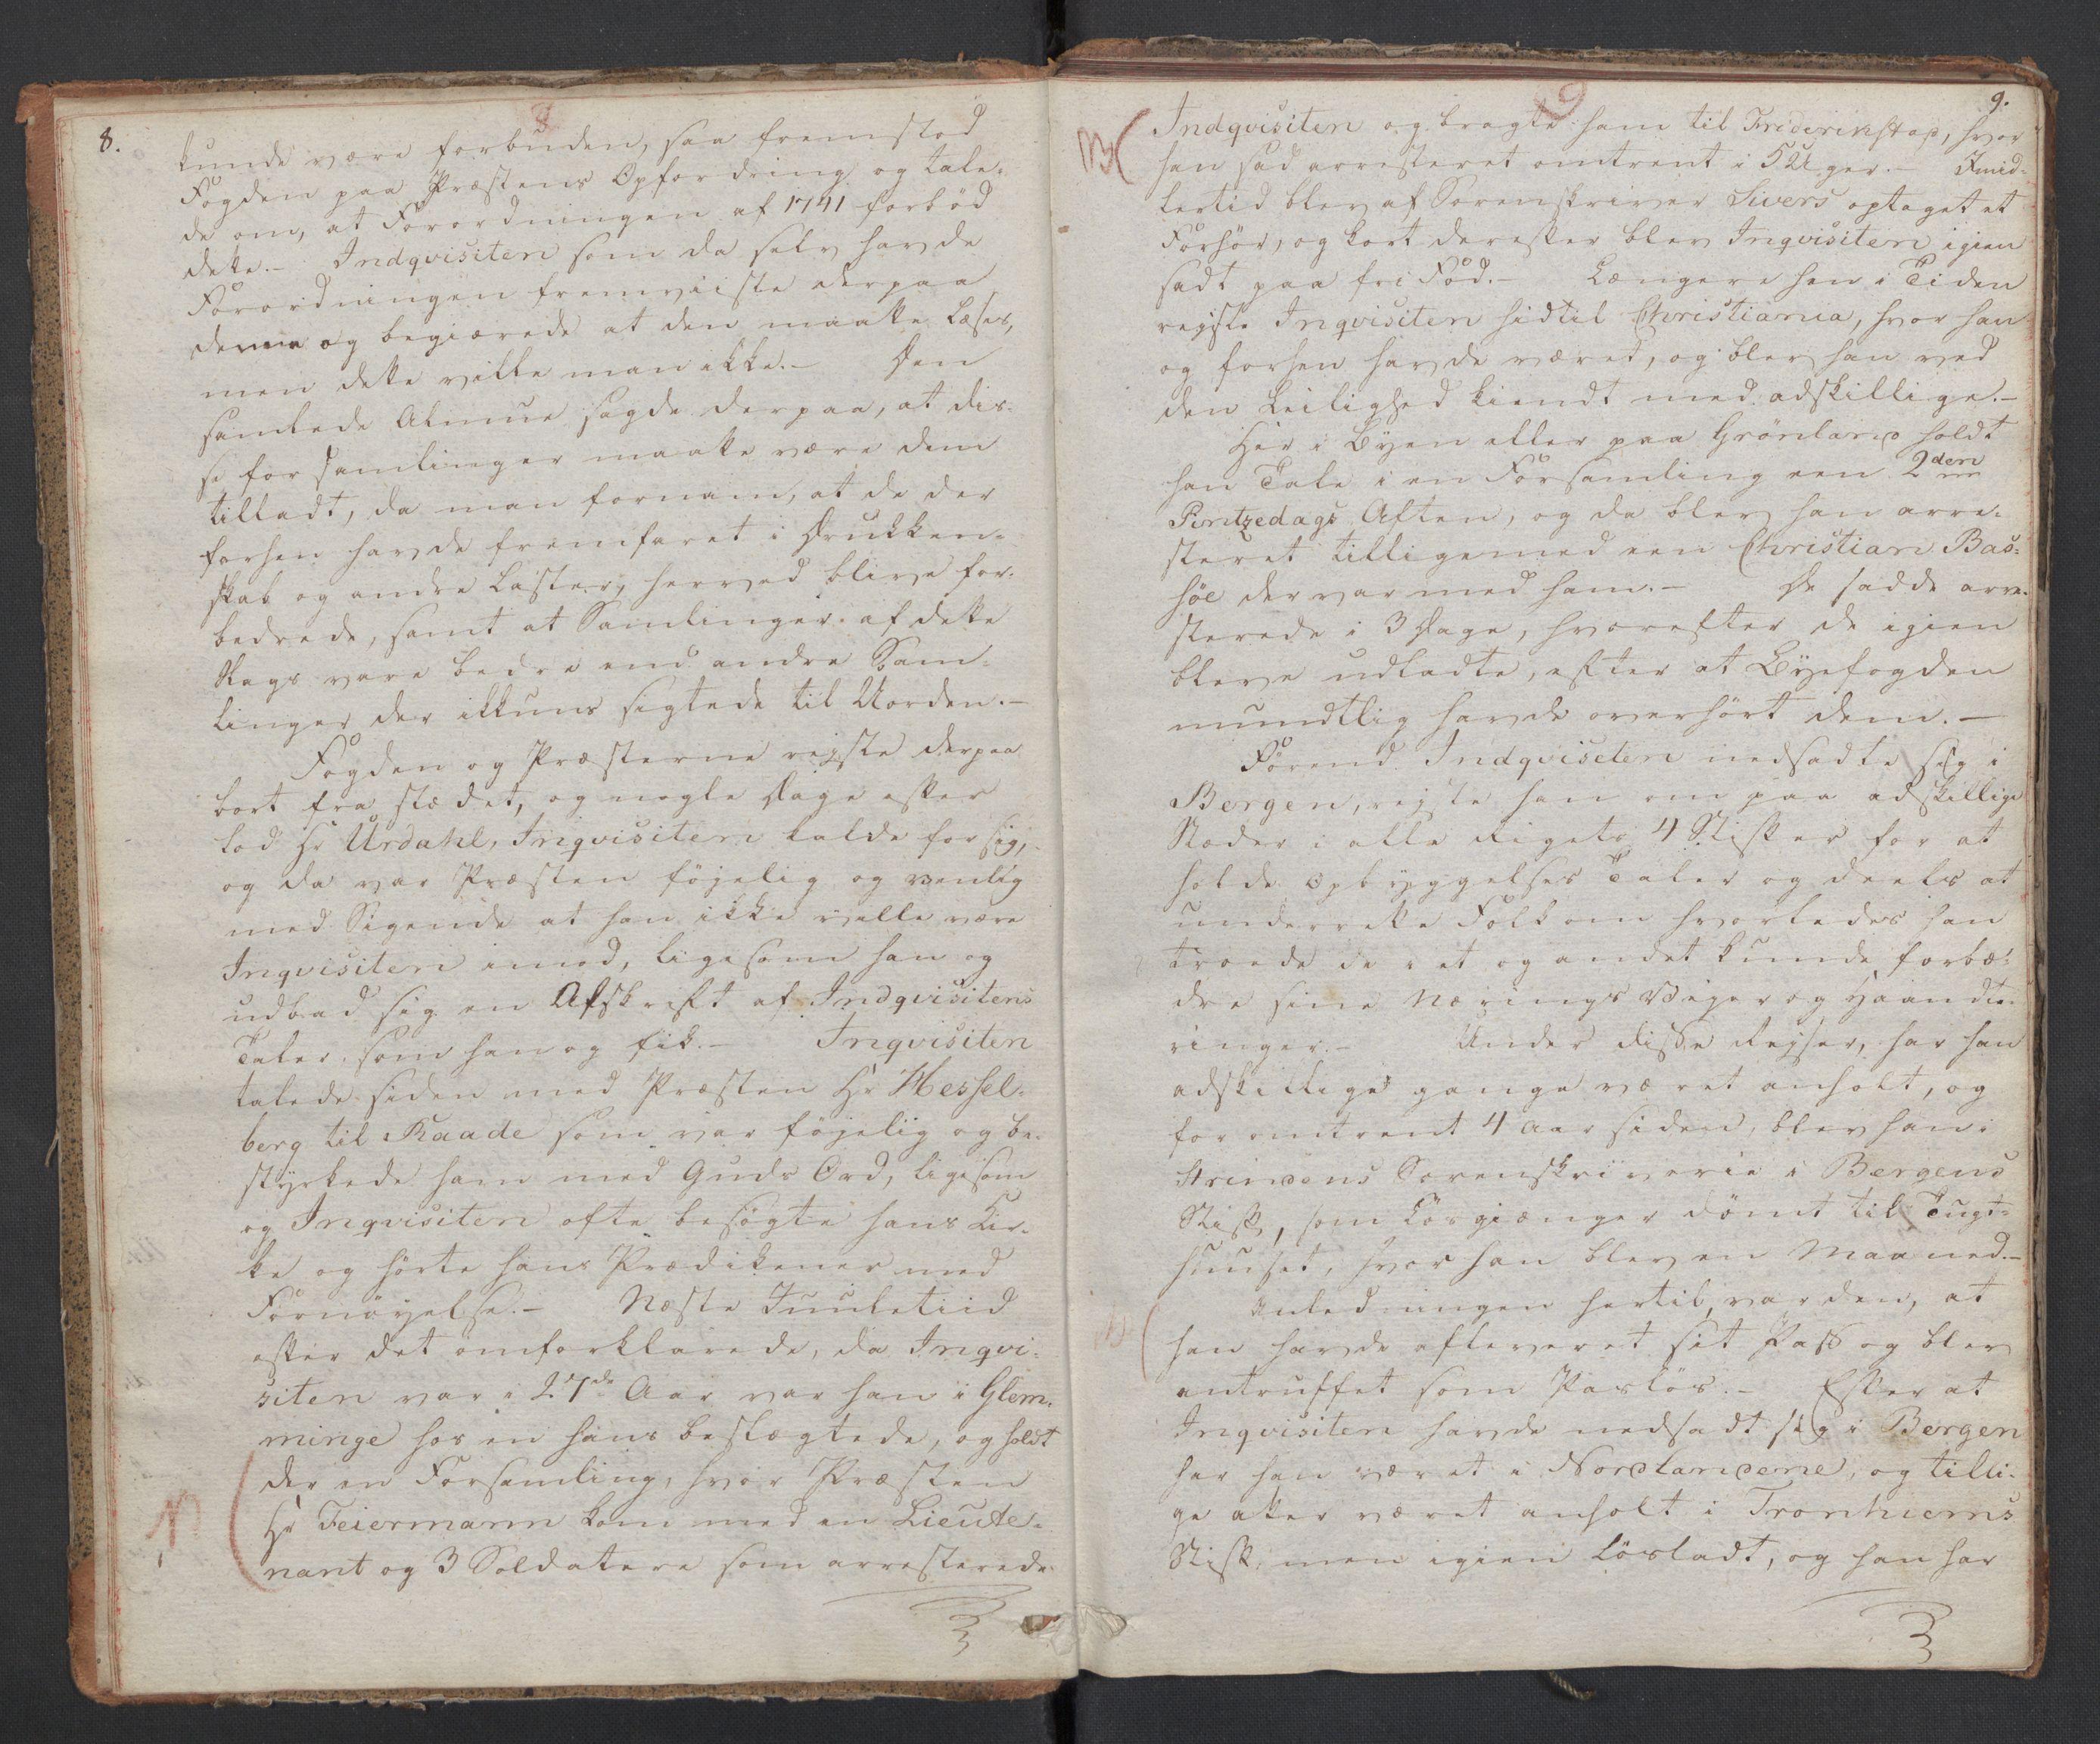 8.
8
kunde være forbuden, saa fremstod
Fogden paa Præstens Opfordring og tale-
de om, at Forordningen af 1741 forbød
dette.- Indqvisiten som da selv havde
Forordningen fremviiste derpaa
denne og begiærede at den maatte læses,
men dette ville man ikke.- Den
samlede Almue sagde derpaa, at dis-
se forsamlinger maatte være dem
tilladt, da man fornam, at de der
forhen havde fremfaret i Drukken-
skab og andre Laster, herved bleve for-
bedrede, samt at Samlinger af dette
Slags vare bedre end andre Sam-
linger der ikkuns sigtede til Uorden.-
Fogden og Præsterne rejste derpaa
bort fra stædet, og nogle Dage efter
lod Hr Urdahl, Inqvisiten kalde for sig,
og da var Præsten føjelig og venlig
med Sigende at han ikke ville være
Inqvisiten imod, ligesom han og
udbad sig en Afskrift af Indqvisitens
Taler som han og fik.- Inqvisiten
talede siden med Præsten Hr Hessel-
berg til Raade som var føjelig og be-
styrkede ham med Guds Ord, ligesom
og Inqvisiten ofte besøgte hans Kir-
ke og hørte hans Prædikener med
Fornøyelse.- Næste Juuletiid
efter det omforklarede, da Inqvi-
siten var i 27de Aar var han i Glem-
minge hos en hans beslægtede, og holdt
der en Forsamling, hvor Præsten
Hr Feiermann kom med en Lieute-
nant og 3 Soldatere som arresterede
9.
9
Indqvisiten og bragte ham til Friderikstad, hvor
han sad arresteret omtrent i 5 Uger.- Imid-
lertid blev af Sorenskriver Sivers optaget et
Forhør, og kort derefter blev Inqvisiten igien
sadt paa fri Fod.- Længere hen i Tiden
rejste Inqvisiten hidtil Christiania, hvor han
og forhen havde været, og blev han ved
den Leilighed kiendt med adskillige.-
Her i Byen eller paa Grønland holdt
han Tale i en Forsamling een 2den
Pintzedags Aften, og da blev han arre-
steret tilligemed een Christian Bas-
høe der var med ham.- De sadde arre-
sterede i 3 Dage, hvorefter de igien
bleve udladte, efter at Byefogden
mundtlig havde overhørt dem.-
Førend Indqvisiten nedsadte sig i
Bergen, rejste han om paa adskillige
Stæder i alle Rigets 4 Stifter for at
holde Opbyggelses Taler og deels at
underrette Folk om hvorledes han
troede de et og andet kunde forbæ-
dre sine Nærings Vejer og Haandte-
ringer.- Under disse Rejser, har han
adskillige gange været anholt, og
for omtrent 4 Aar siden, blev han i
Strindens Sorenskriverie i Bergens
Stift, som Løsgiænger dømt til Tugt-
huuset, hvor han blev en Maaned.-
Anledningen hertil, var den, at
han havde afleveret sit Pass og blev
antruffet som Pasløs.- Efter at
Inqvisiten havde nedsadt sig i Bergen
har han været i Nordlandene, og tilli-
ge atter været anholt i Tronhiems
Stift, men igien løsladt, og han har